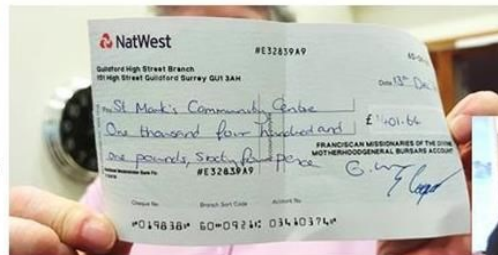 NatWest
#E32839A9
Guildford High Street Branch
151 High Street Guildford Surrey GU1 3AH
Date 13th Dec
Pay St Mark's Community Centre
One thousand four hundred and
£ 1401.64
one pounds, Sixty four pence
FRANCISCAN MISSIONARIES OF THE DIVINE
MOTHERHOODGENERAL BURSARS ACCOUNT
#E32839A9
Cheque No. Branch Sort Code Account No.